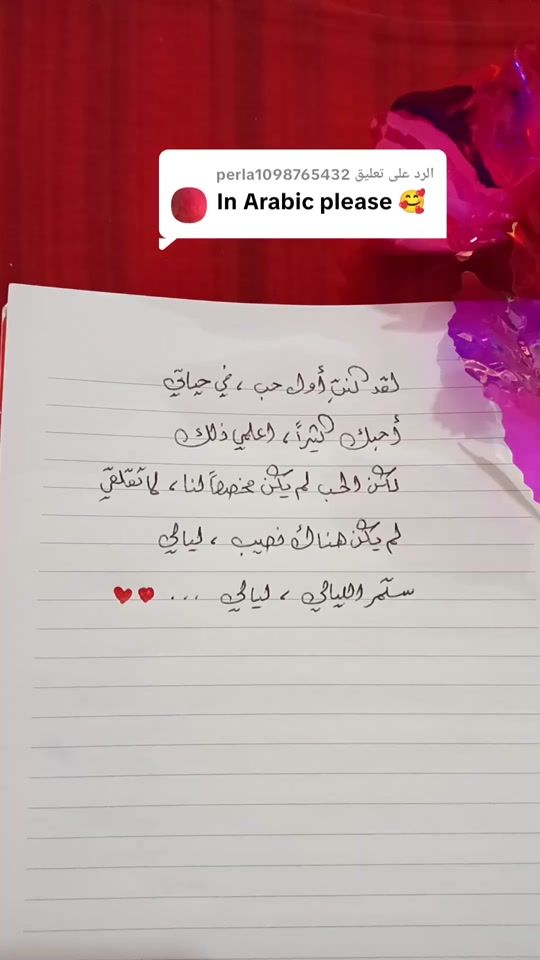 الرد على تعليق perla1098765432
In Arabic please 🥰
لقد كنتِ أول حب ، في حياتي
أحبك كثيراً ، اعلمي ذلك
لكن الحب لم يكن مخصصاً لنا ، لا تقلقي
لم يكن هناك نصيب ، ليالي
ستمر الليالي ، ليالي ... ♥♥